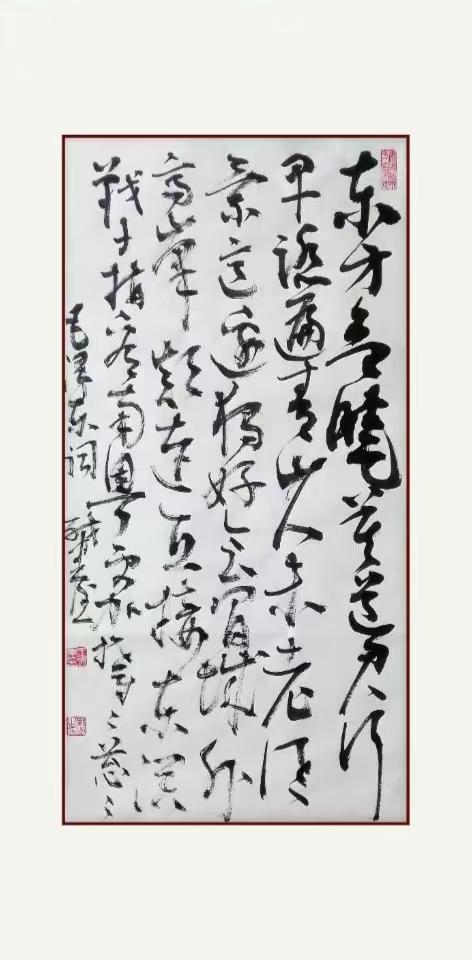 东方欲晓莫道君行
早踏遍青山人未老风
景这边独好会昌城外
高峯颠连直接东溟
战士指看南粤更加郁〻葱〻
毛泽东词